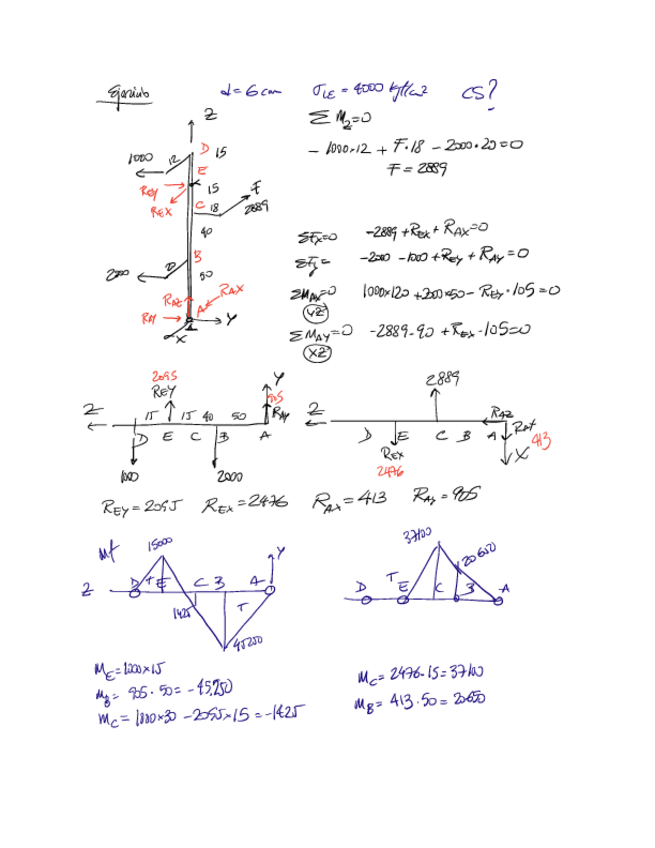 Ejercicio d = 6 cm σLE = 4000 kgf/cm² CS?
Z
Σ Mz=0
- 1000×12 + F·18 - 2000·20=0
F = 2889
1000 12 D 15
E
REY 15 F
REX C 18 2889
40
B
2000 50
RAZ RAX
RAY A Y
X
ΣFx=0 -2889 + REX + RAX=0
ΣFy= -2000 -1000 + REY + RAY = 0
ΣMAX=0 1000×120 + 2000×50 - REY·105 = 0
YZ
ΣMAY=0 -2889·90 + REX·105=0
XZ
2095 Y
REY 905
Z 15 15 40 50 RAY
D E C B A
1000 2000
2889
Z RAZ
D E C B A RAX
REX X 413
2476
REY = 2095 REX = 2476 RAX = 413 RAY = 905
Mf 15000 Y
Z D T E C B A
1425 T
45250
37100
20650
D T E C B A
ME = 1000×15
MB = 905·50 = -45,250
MC = 1000×30 - 2095×15 = -1425
MC = 2476·15 = 37100
MB = 413·50 = 20650